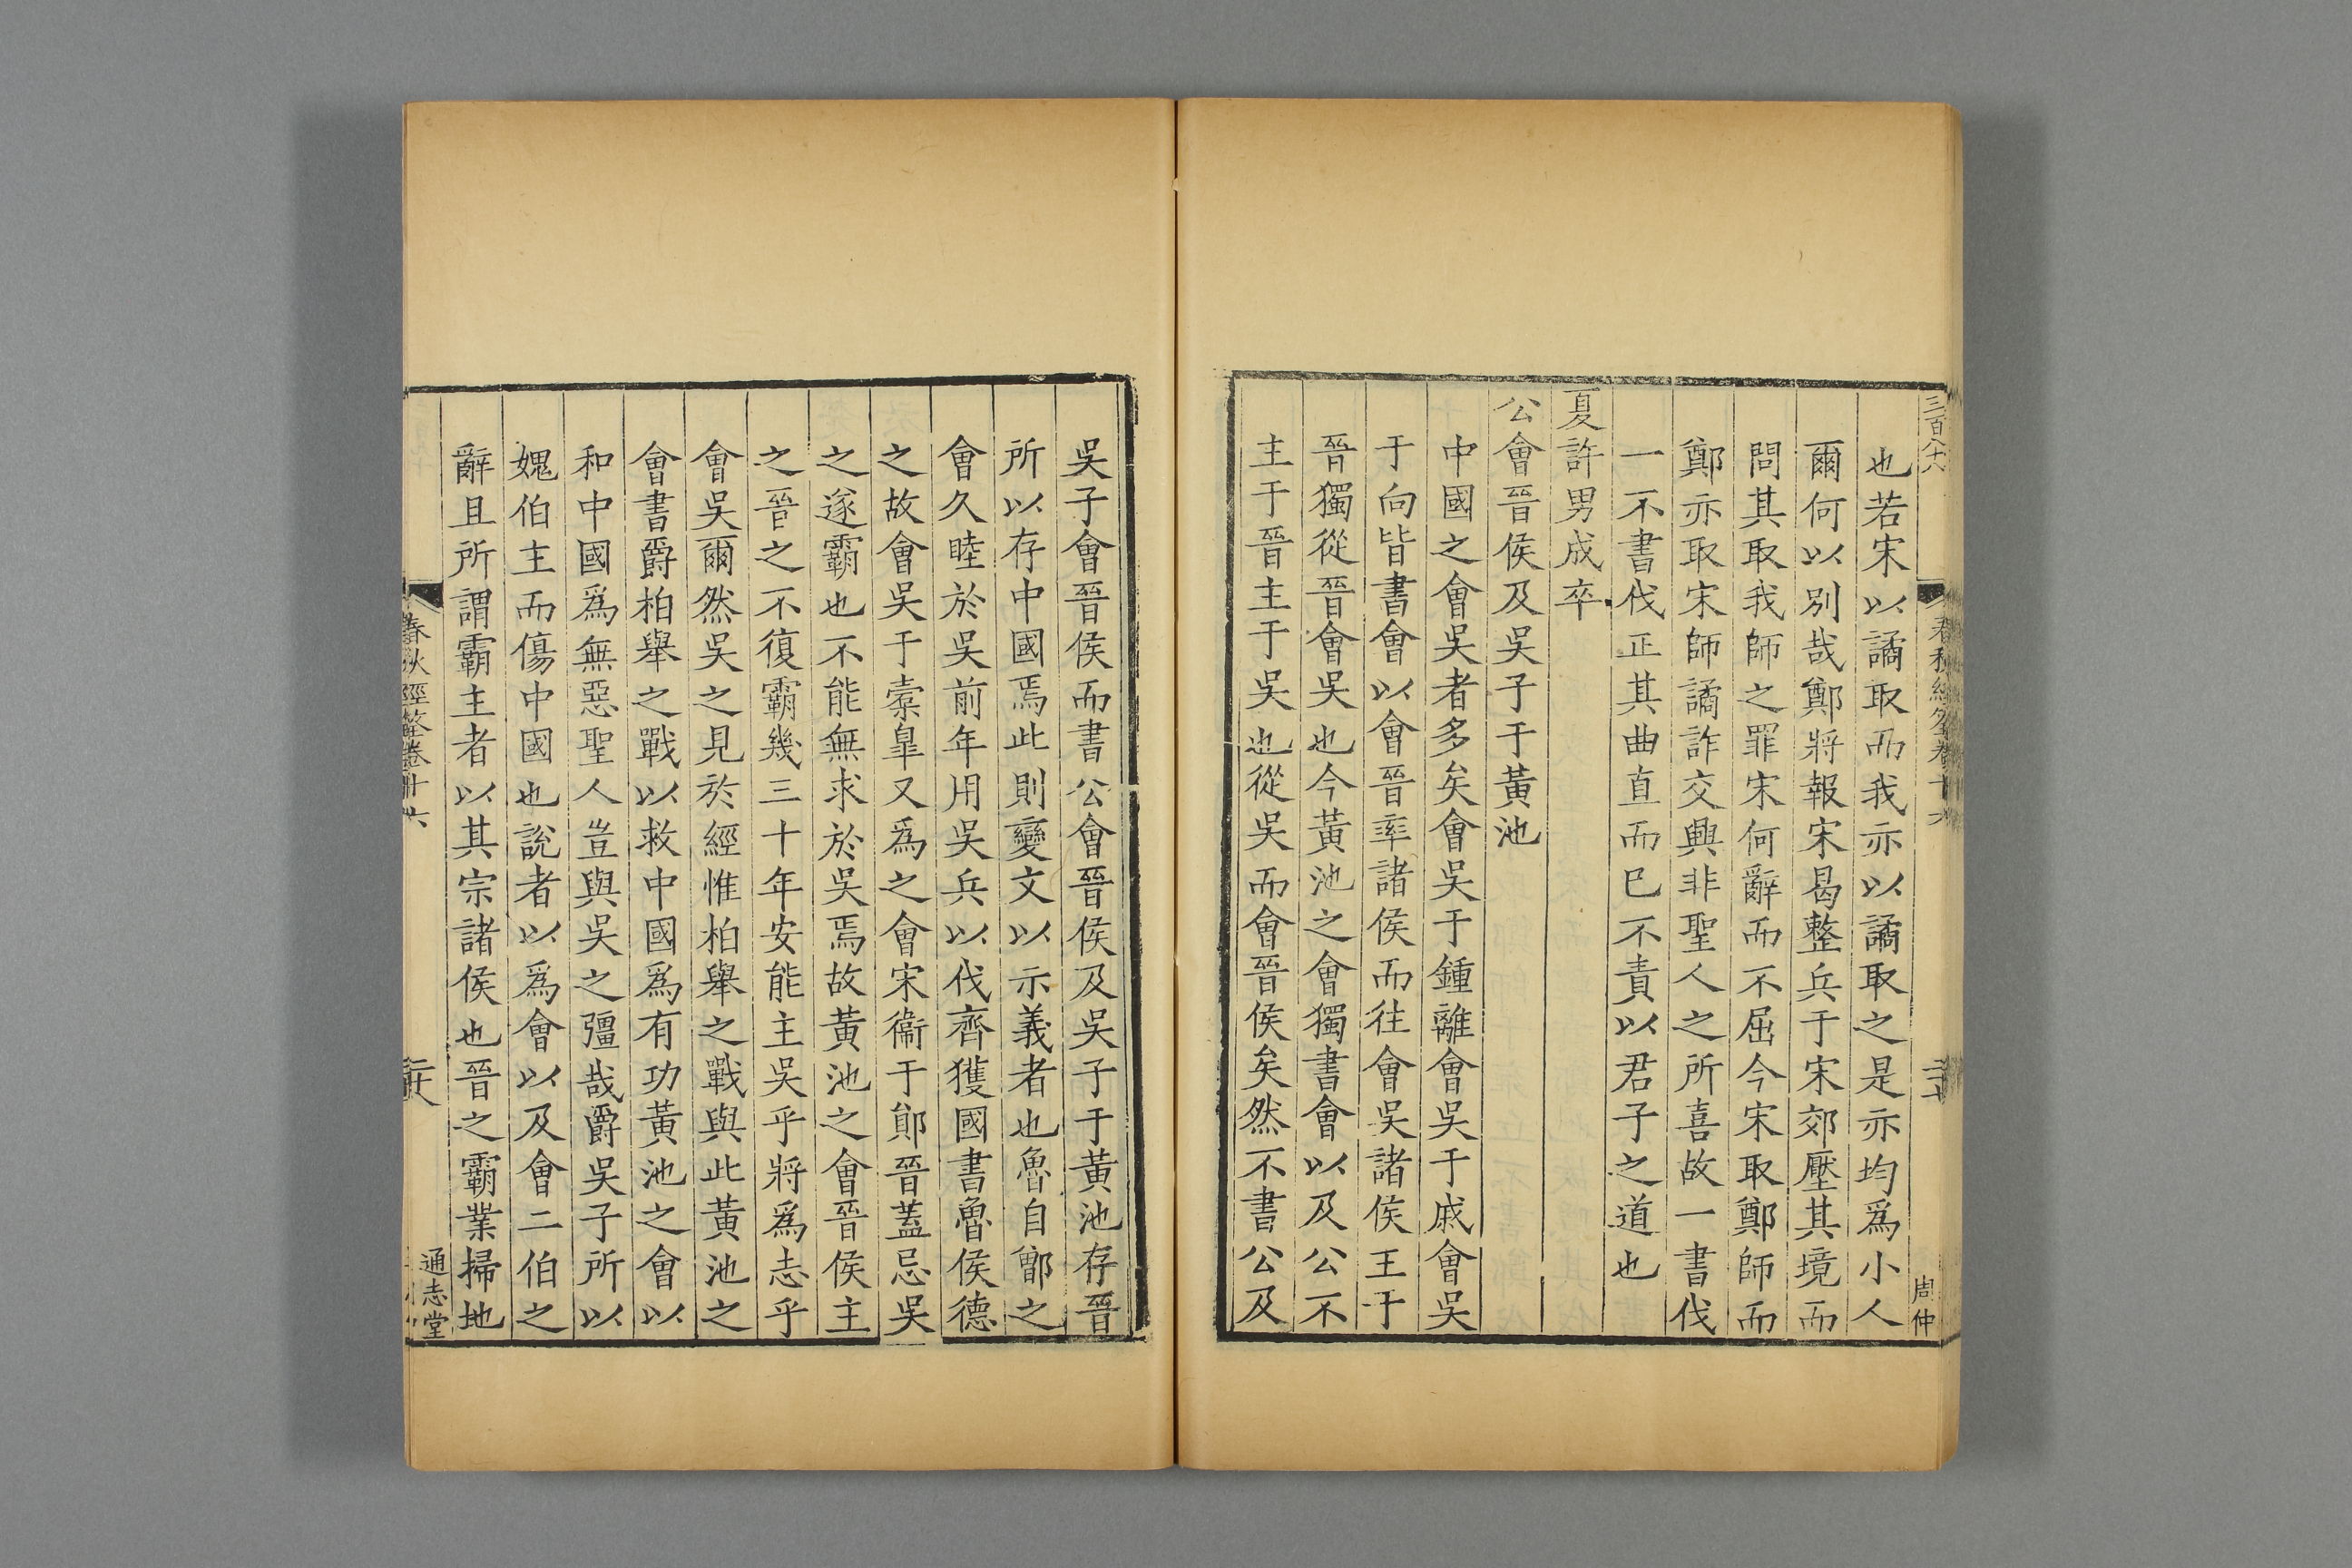 三百八十六
春秋經筌卷十六
二十七
周仲
也若宋以譎取而我亦以譎取之是亦均爲小人
爾何以別哉鄭將報宋曷整兵于宋郊壓其境而
問其取我師之罪宋何辭而不屈今宋取鄭師而
鄭亦取宋師譎詐交興非聖人之所喜故一書伐
一不書伐正其曲直而已不責以君子之道也
夏許男成卒
公會晉侯及吳子于黃池
中國之會吳者多矣會吳于鍾離會吳于戚會吳
于向皆書會以會晉率諸侯而往會吳諸侯王于
晉獨從晉會吳也今黃池之會獨書會以及公不
主于晉主于吳也從吳而會晉侯矣然不書公及
吳子會晉侯而書公會晉侯及吳子于黃池存晉
所以存中國焉此則變文以示義者也魯自鄫之
會久睦於吳前年用吳兵以伐齊獲國書魯侯德
之故會吳于橐臯又爲之會宋衞于鄖晉蓋忌吳
之遂霸也不能無求於吳焉故黃池之會晉侯主
之晉之不復霸幾三十年安能主吳乎將爲志乎
會吳爾然吳之見於經惟柏舉之戰與此黃池之
會書爵柏舉之戰以救中國爲有功黃池之會以
和中國爲無惡聖人豈與吳之彊哉爵吳子所以
媿伯主而傷中國也說者以爲會以及會二伯之
辭且所謂霸主者以其宗諸侯也晉之霸業掃地
春秋經筌卷十六
二十八
通志堂